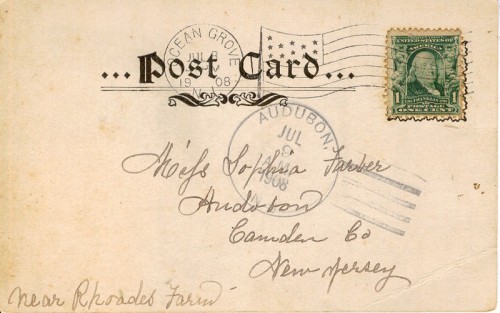 OCEAN GROVE
JUL 8
1908
N.J.
...Post Card...
UNITED STATES OF AMERICA
1 1
ONE CENT
AUDUBON,
JUL
9
1908
Miss Sophia Farber
Audobon
Camden Co
New Jersey
near Rhoades Farm